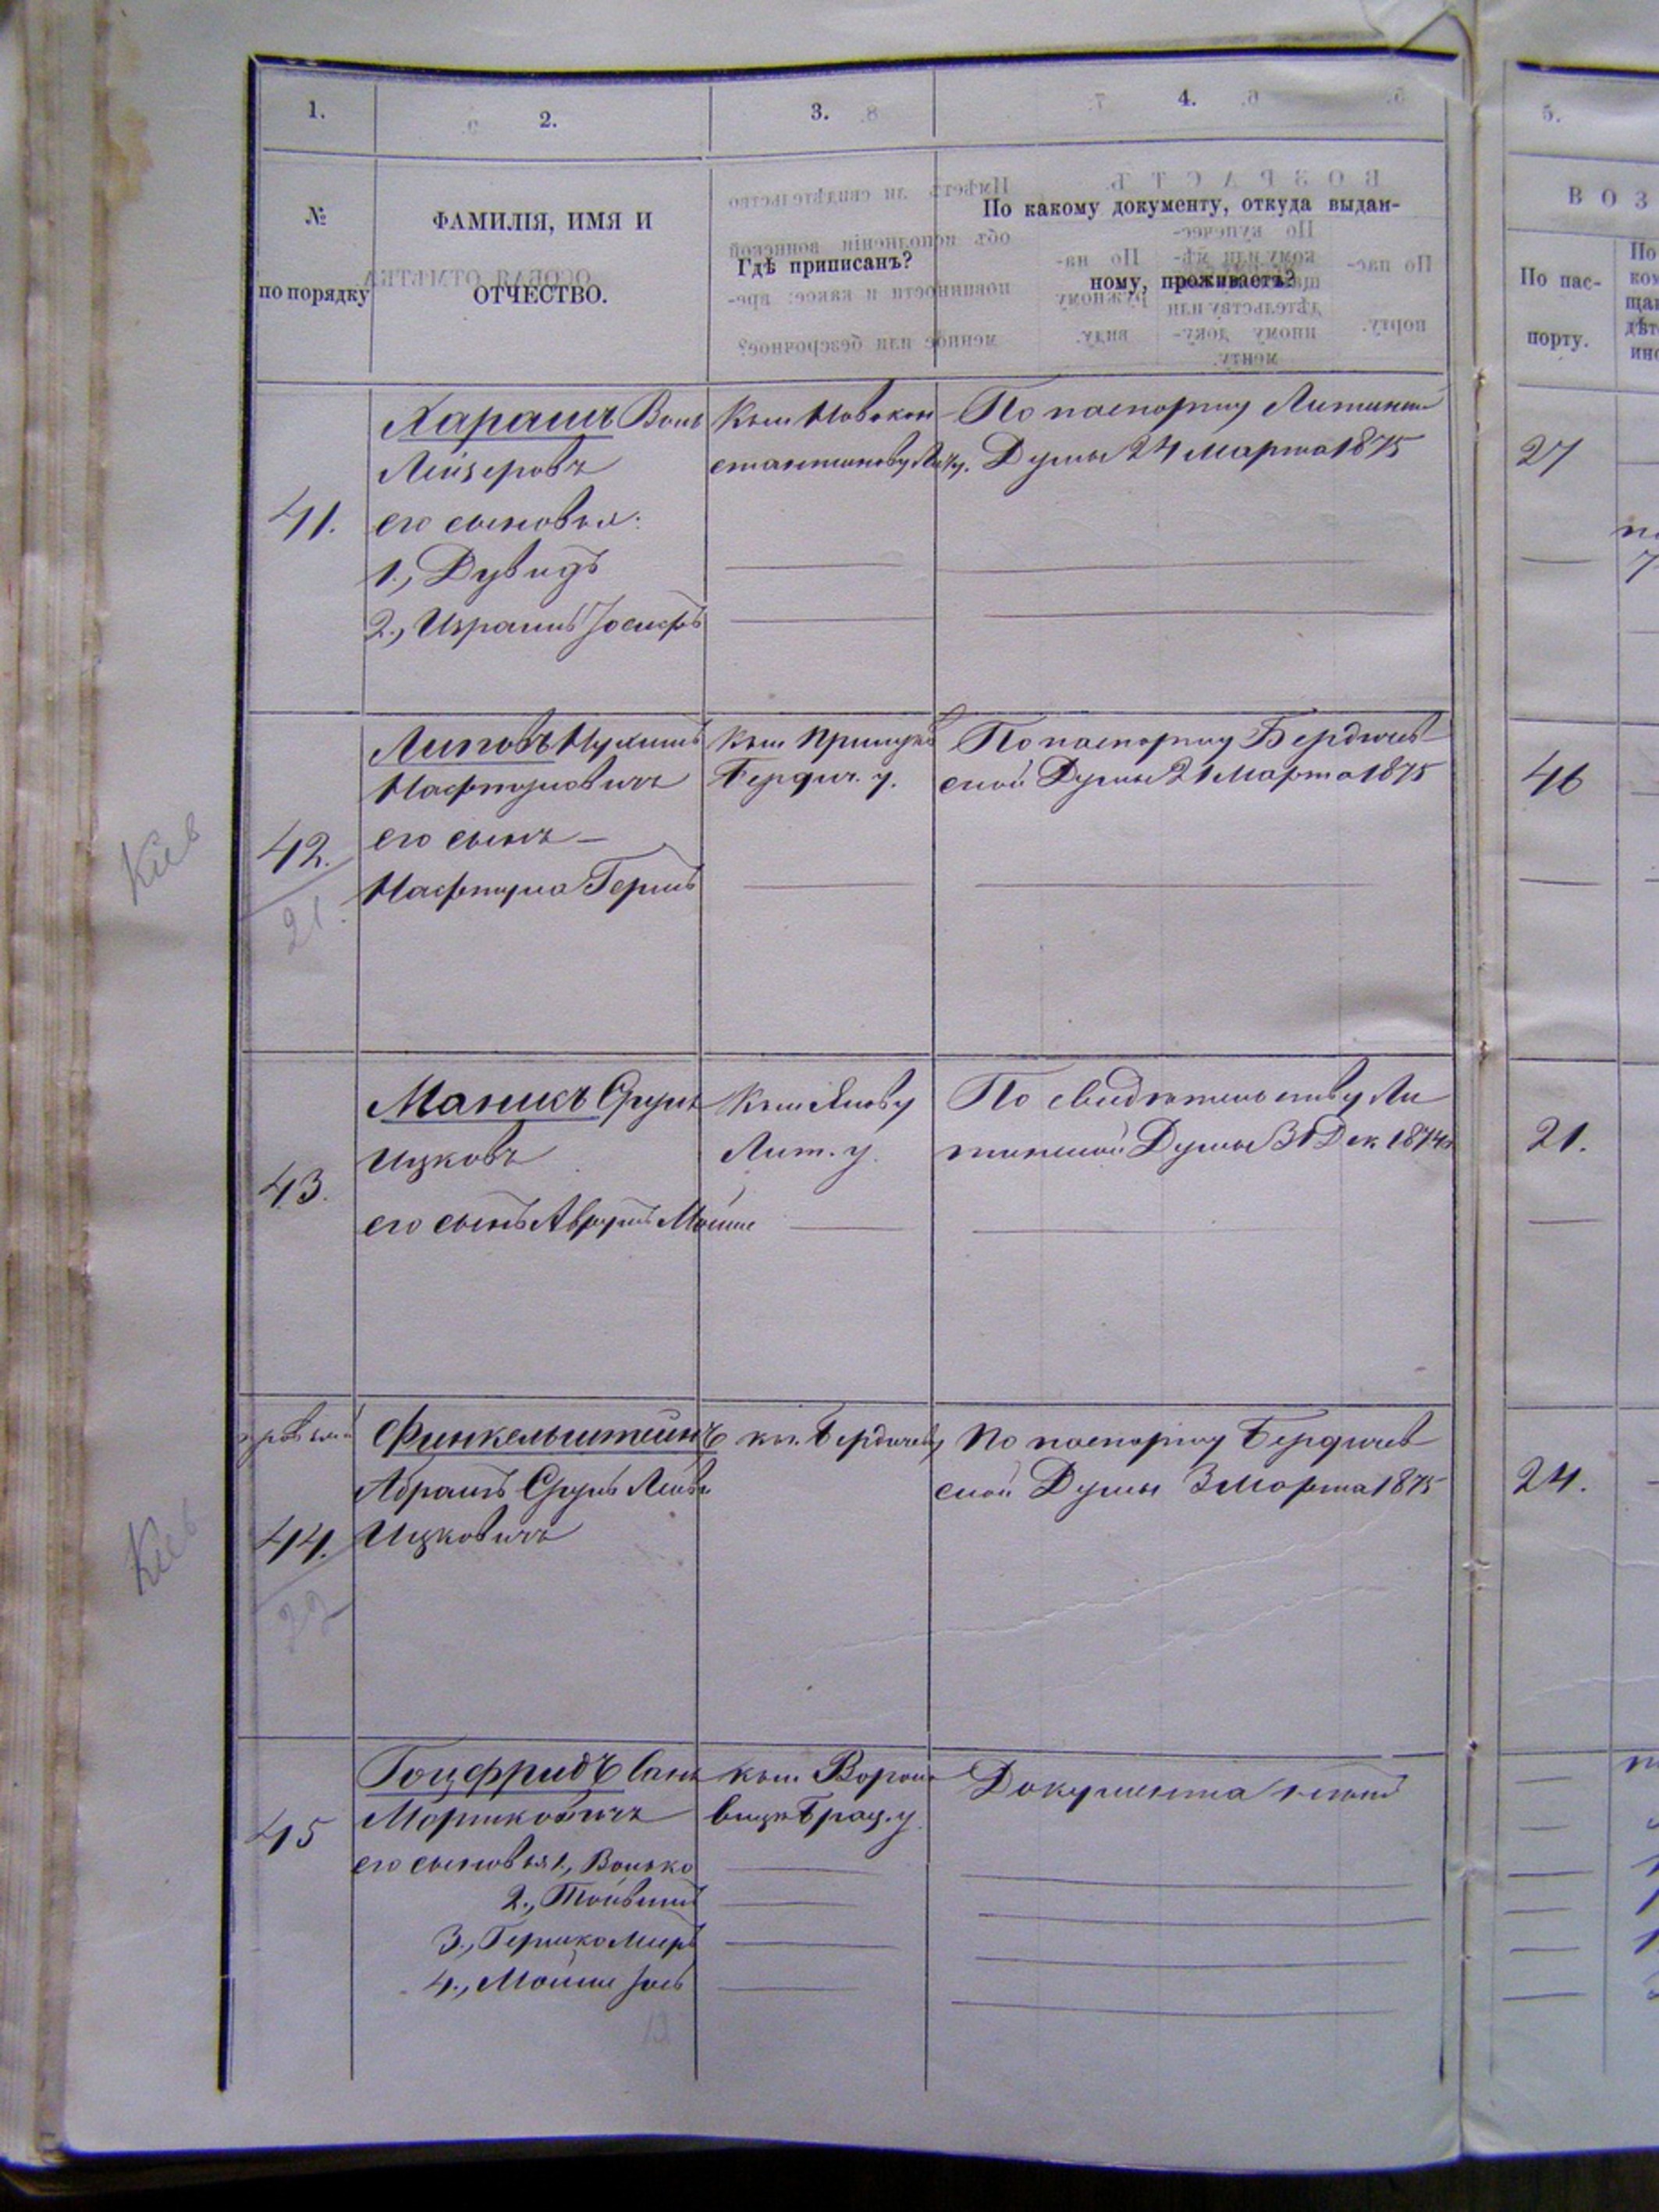 1.
2.
3.
4.
5.
№
по порядку
ФАМИЛІЯ, ИМЯ И
ОТЧЕСТВО.
Гдѣ приписанъ?
По какому документу, откуда выдан-
ному, проживаетъ?
ВОЗ
По пас-
порту.
41.
Харашъ
Лейзеровъ
его сыновья:
1., Дувидъ
2., Израиль Іосифъ
Къ м Новокон-
стантинову Лит у.
По паспорту Литинской
Думы 24 Марта 1875
27
Кіев
42.
21.
Липовъ
Нафтуловичъ
его сынъ –
Нафтула Гершъ
Къ м
Бердич. у.
По паспорту Бердичев-
ской Думы 21 Марта 1875
46
43.
Маникъ Сруль
Ицковъ
его сынъ Аврумъ Мойше
Къ м Янову
Лит. у.
По свидѣтельству Ли
тинской Думы 31 Дек. 1874
21.
Кіев
44.
22
Финкельштейнъ
Абрамъ Сруль Лейб
Ицковичъ
къ г. Бердичеву
По паспорту Бердичев-
ской Думы 3 Марта 1875
24.
45
Гоцфридъ
Моршковичъ
его сыновья 1., Волько
2., Тойвель
3., Гершко Меиръ
4., Мойше Іось
къ м. Вороно
вицѣ Брац. у.
Документа нѣтъ